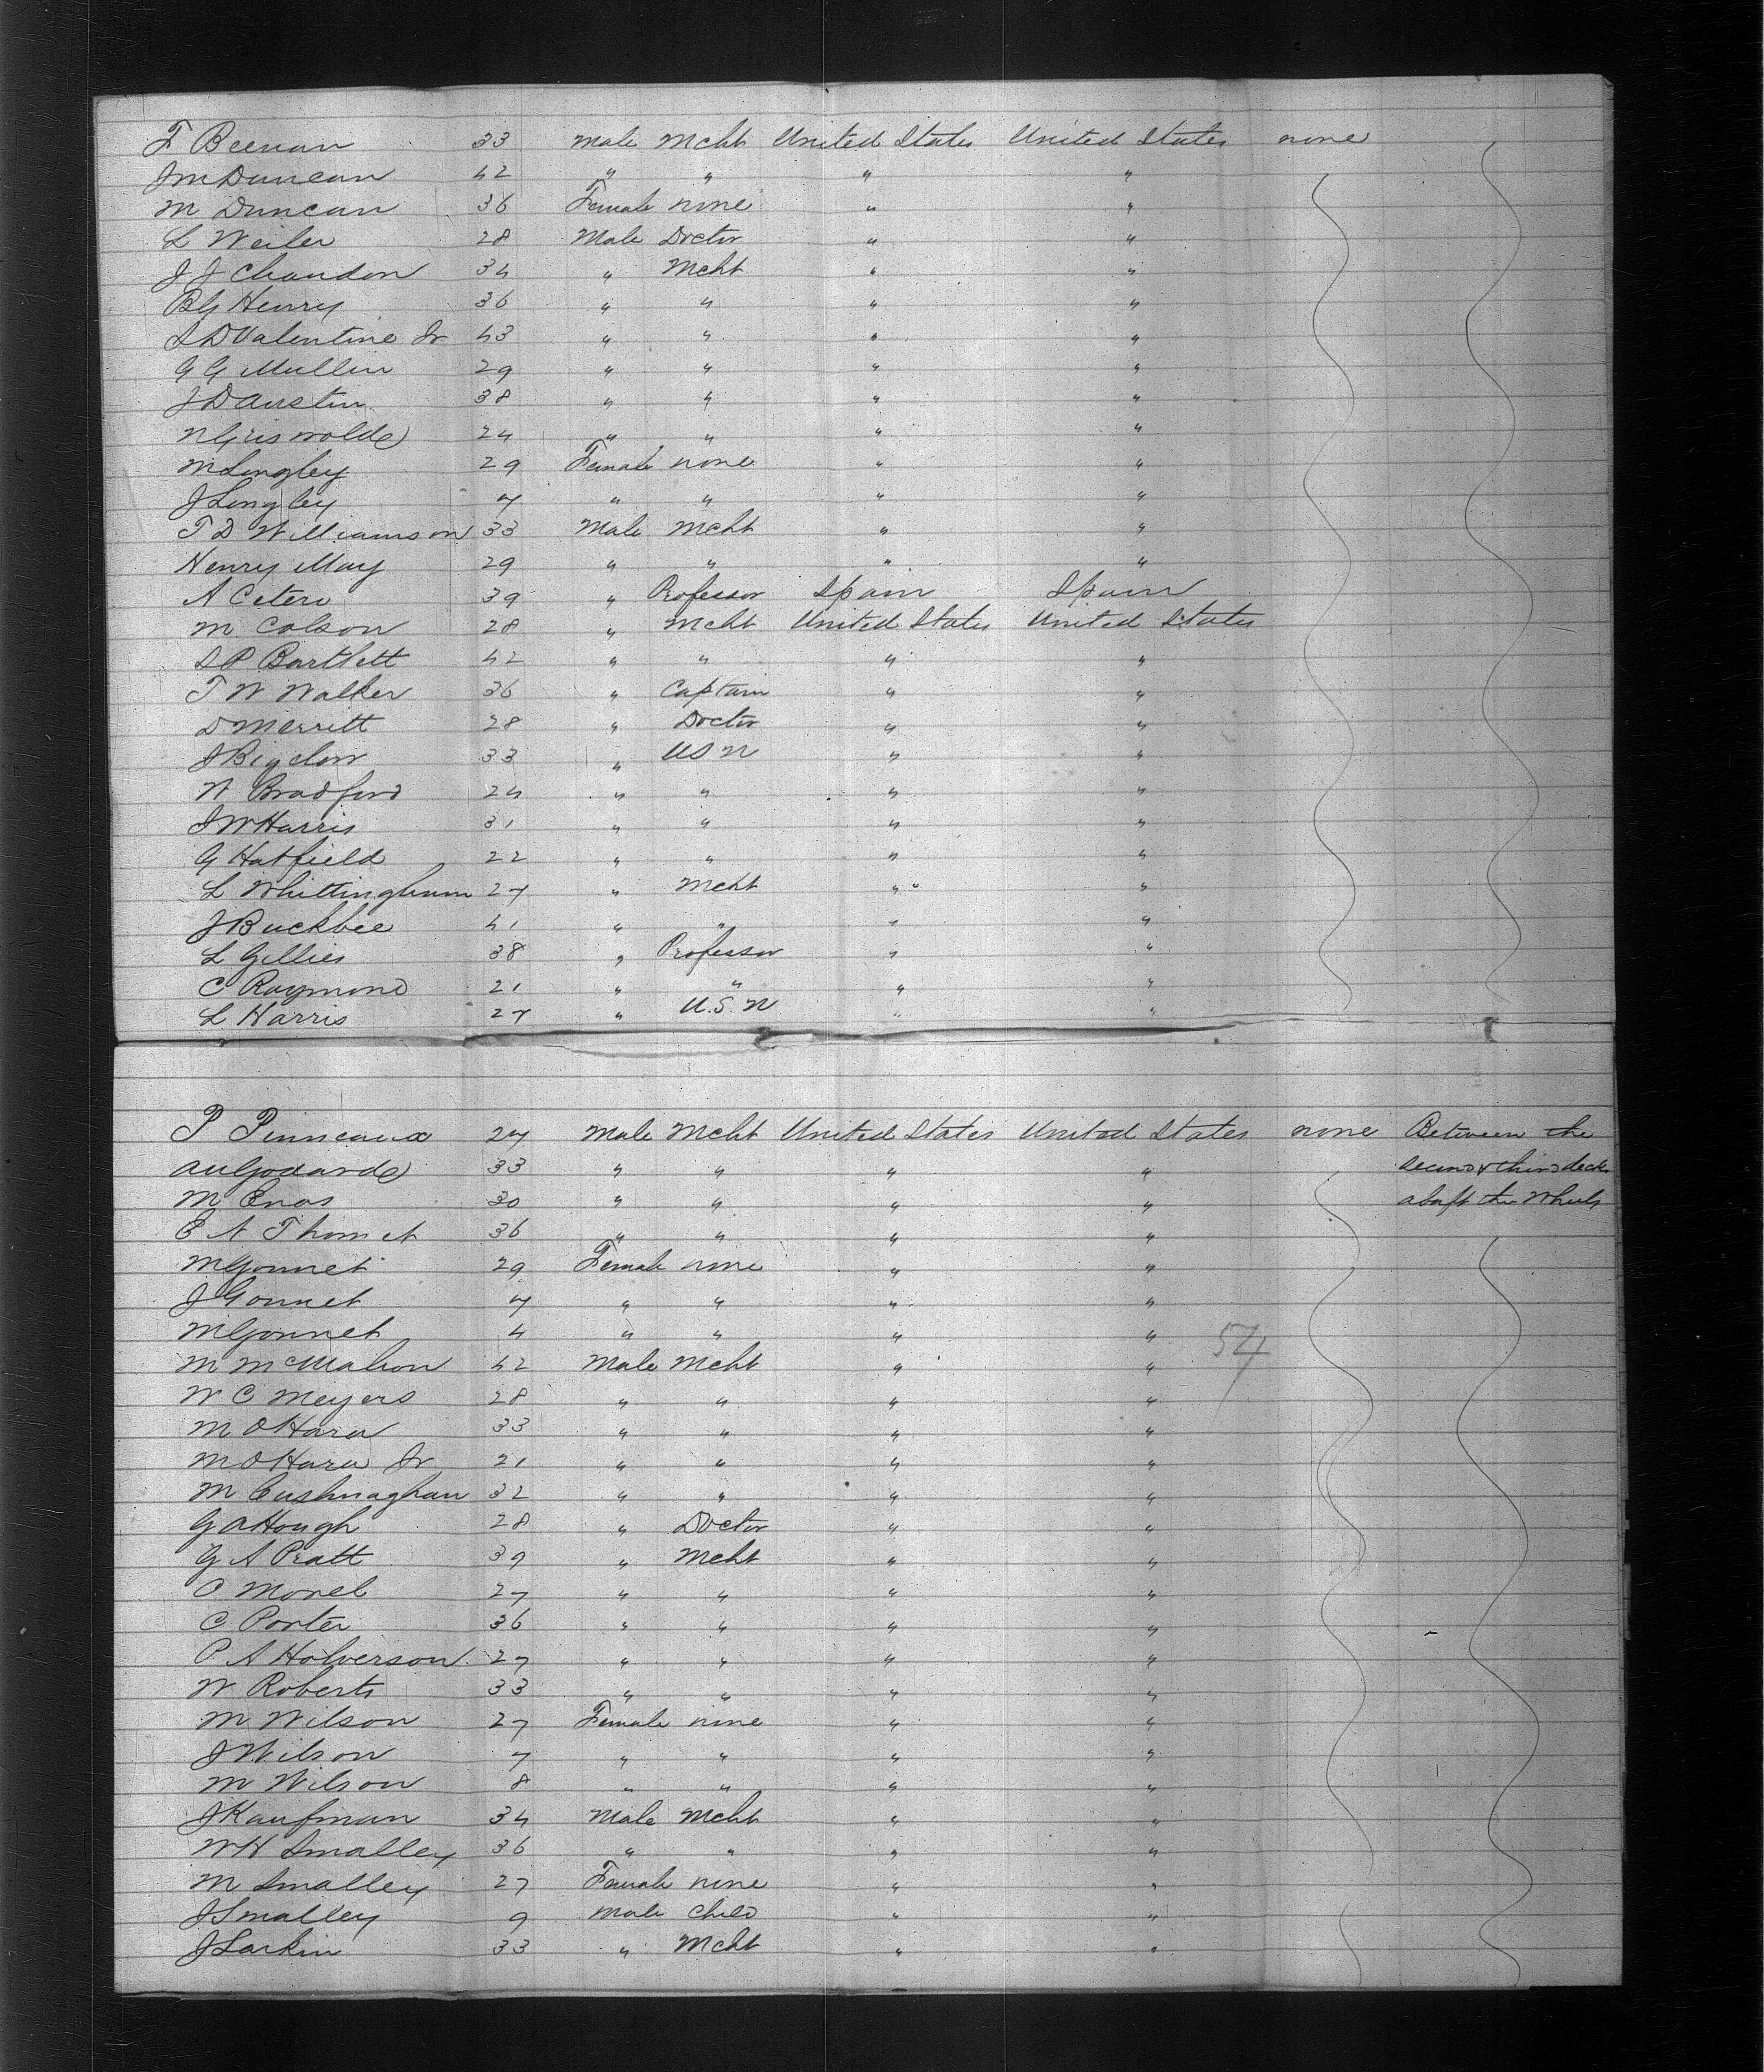 F Beenan 33 Male Mcht United States United States none
J M Duncan 42 " " " "
M Duncan 36 Female none " "
L Weiler 28 Male Doctor " "
J J Chaudon 34 " Mcht " "
B G Henry 36 " " " "
S D Valentine Jr 43 " " " "
G G Mullin 29 " " " "
J D Austin 38 " " " "
N Griswolde 24 " " " "
M Longley 29 Female none " "
J Longley 7 " " " "
T D Williamson 33 Male Mcht " "
Henry May 29 " " " "
A Cetero 39 " Professor Spain Spain
M Colson 28 " Mcht United States United States
S P Bartlett 42 " " " "
T W Walker 36 " Captain " "
D Merritt 28 " Doctor " "
J Bigelow 33 " USN " "
N Bradford 24 " " " "
J W Harris 31 " " " "
G Hatfield 22 " " " "
L Whittingham 27 " Mcht " "
J Buckbee 41 " " " "
L Gillies 38 " Professor " "
C Raymond 21 " " " "
L Harris 27 " U.S.N " "
P Pinneaux 27 Male Mcht United States United States none Between the
33 " " " " second & third decks
M Enos 30 " " " " abaft the Wheels
E A Thomet 36 " " " "
M Gonnet 29 Female none " "
J Gonnet 7 " " " "
M Gonnet 4 " " " "
54
M McMahon 42 Male Mcht " "
W C Meyers 28 " " " "
M OHara 33 " " " "
M OHara Jr 21 " " " "
M Cushnaghan 32 " " " "
G A Hough 28 " Doctor " "
G A Pratt 39 " Mcht " "
C Morel 27 " " " "
C Porter 36 " " " "
P A Holverson 27 " " " "
W Roberts 33 " " " "
M Wilson 27 Female none " "
J Wilson 7 " " " "
M Wilson 8 " " " "
J Kaufman 34 Male Mcht " "
W H Smalley 36 " " " "
M Smalley 27 Female none " "
J Smalley 9 Male Child " "
J Larkin 33 " Mcht " "